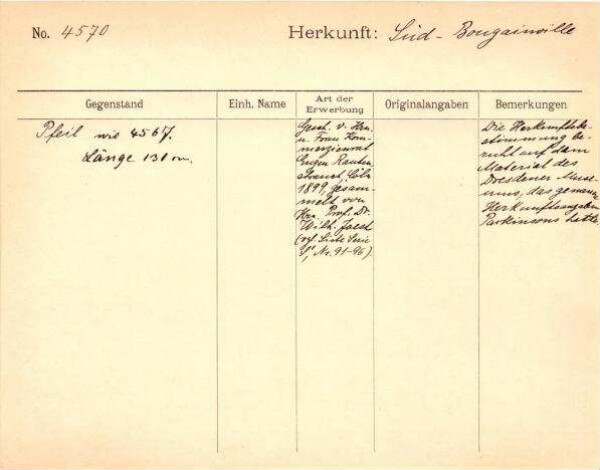 No. 4570 Herkunft: Süd-Bougainville
Gegenstand Einh. Name Art der Erwerbung Originalangaben Bemerkungen
Pfeil wie 4567.
Länge 131 cm.
Gesch. v. Hrn.
u. Frau Kom-
merzienrat
Eugen Rauten-
strauch, Cöln
1899, gesam-
melt von
Hrn. Prof. Dr.
Wilh. Joest
(cf. Liste Serie
V, No. 91-96).
Die Herkunftsbe-
stimmung be-
ruht auf dem
Material des
Dresdener Muse-
ums, das genaue
Herkunftsangaben
Parkinsons hatte.